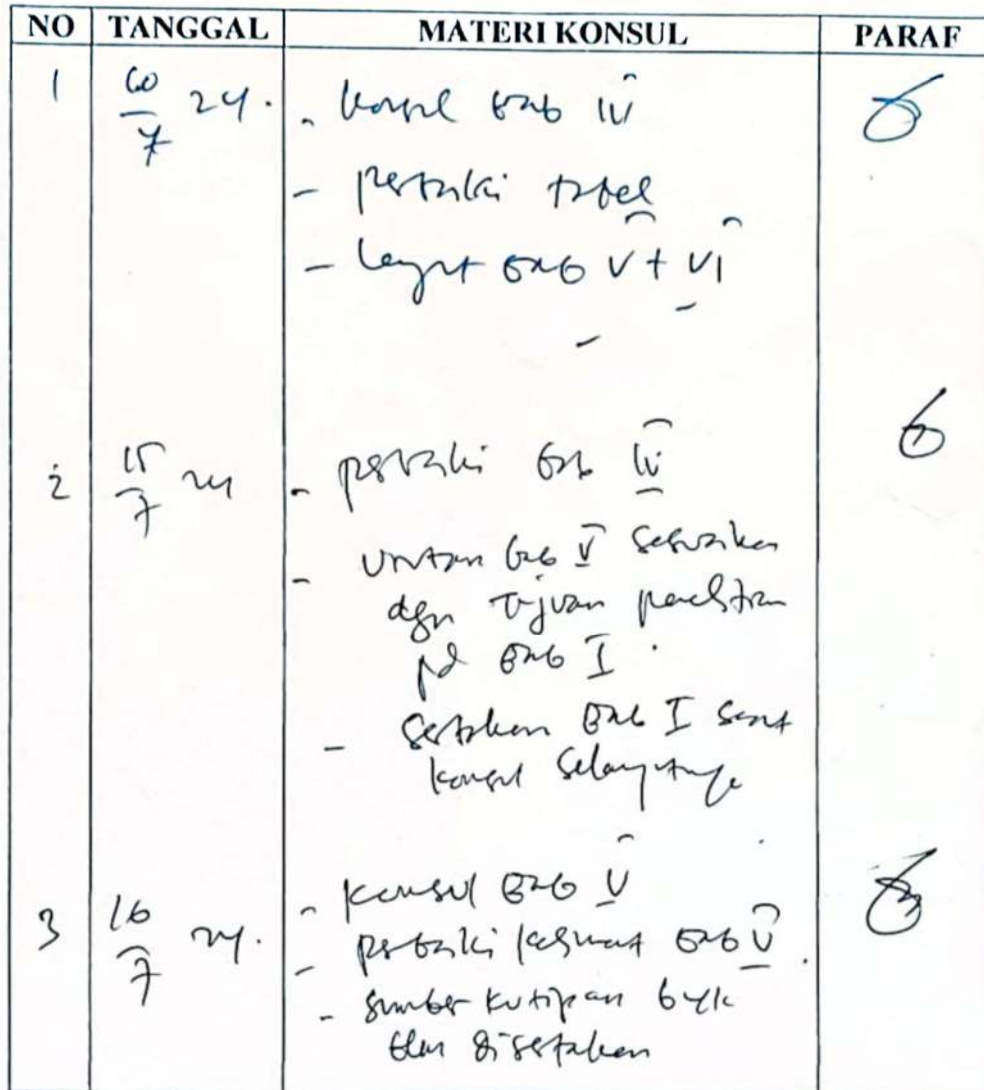 NO TANGGAL MATERI KONSUL PARAF
1 10/7 24. - konsul bab IV
- perbaiki tabel
- lanjut bab V + VI
2 15/7 24 - perbaiki bab IV
- Urutan bab V sesuaikan
dgn tujuan penelitian
pd bab I.
- Sertakan bab I saat
konsul selanjutnya
3 16/7 24. - konsul bab V
- perbaiki kalimat bab V.
- sumber kutipan byk
blm disertakan